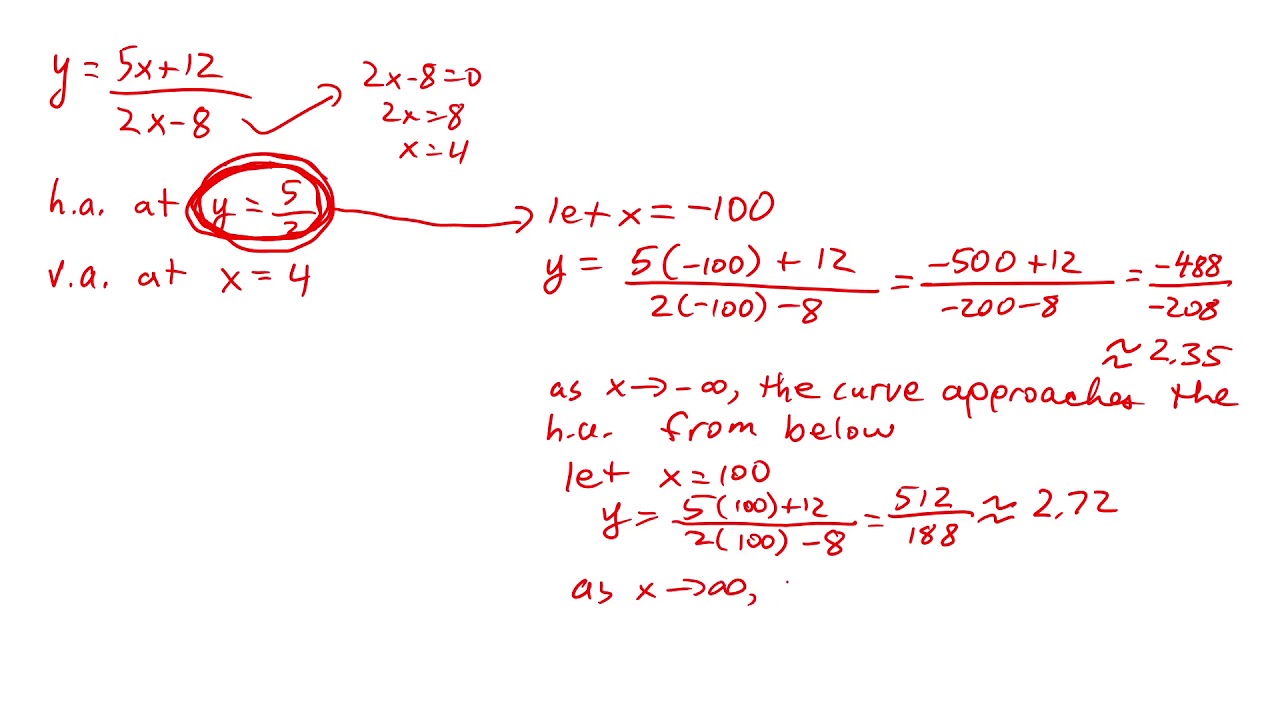 y = 5x+12 / 2x-8
2x-8=0
2x=8
x=4
h.a. at y = 5/2
v.a. at x = 4
let x = -100
y = 5(-100) + 12 / 2(-100) - 8 = -500+12 / -200-8 = -488 / -208
≈ 2.35
as x→-∞, the curve approaches the
h.a. from below
let x = 100
y = 5(100)+12 / 2(100) - 8 = 512 / 188 ≈ 2.72
as x→∞,